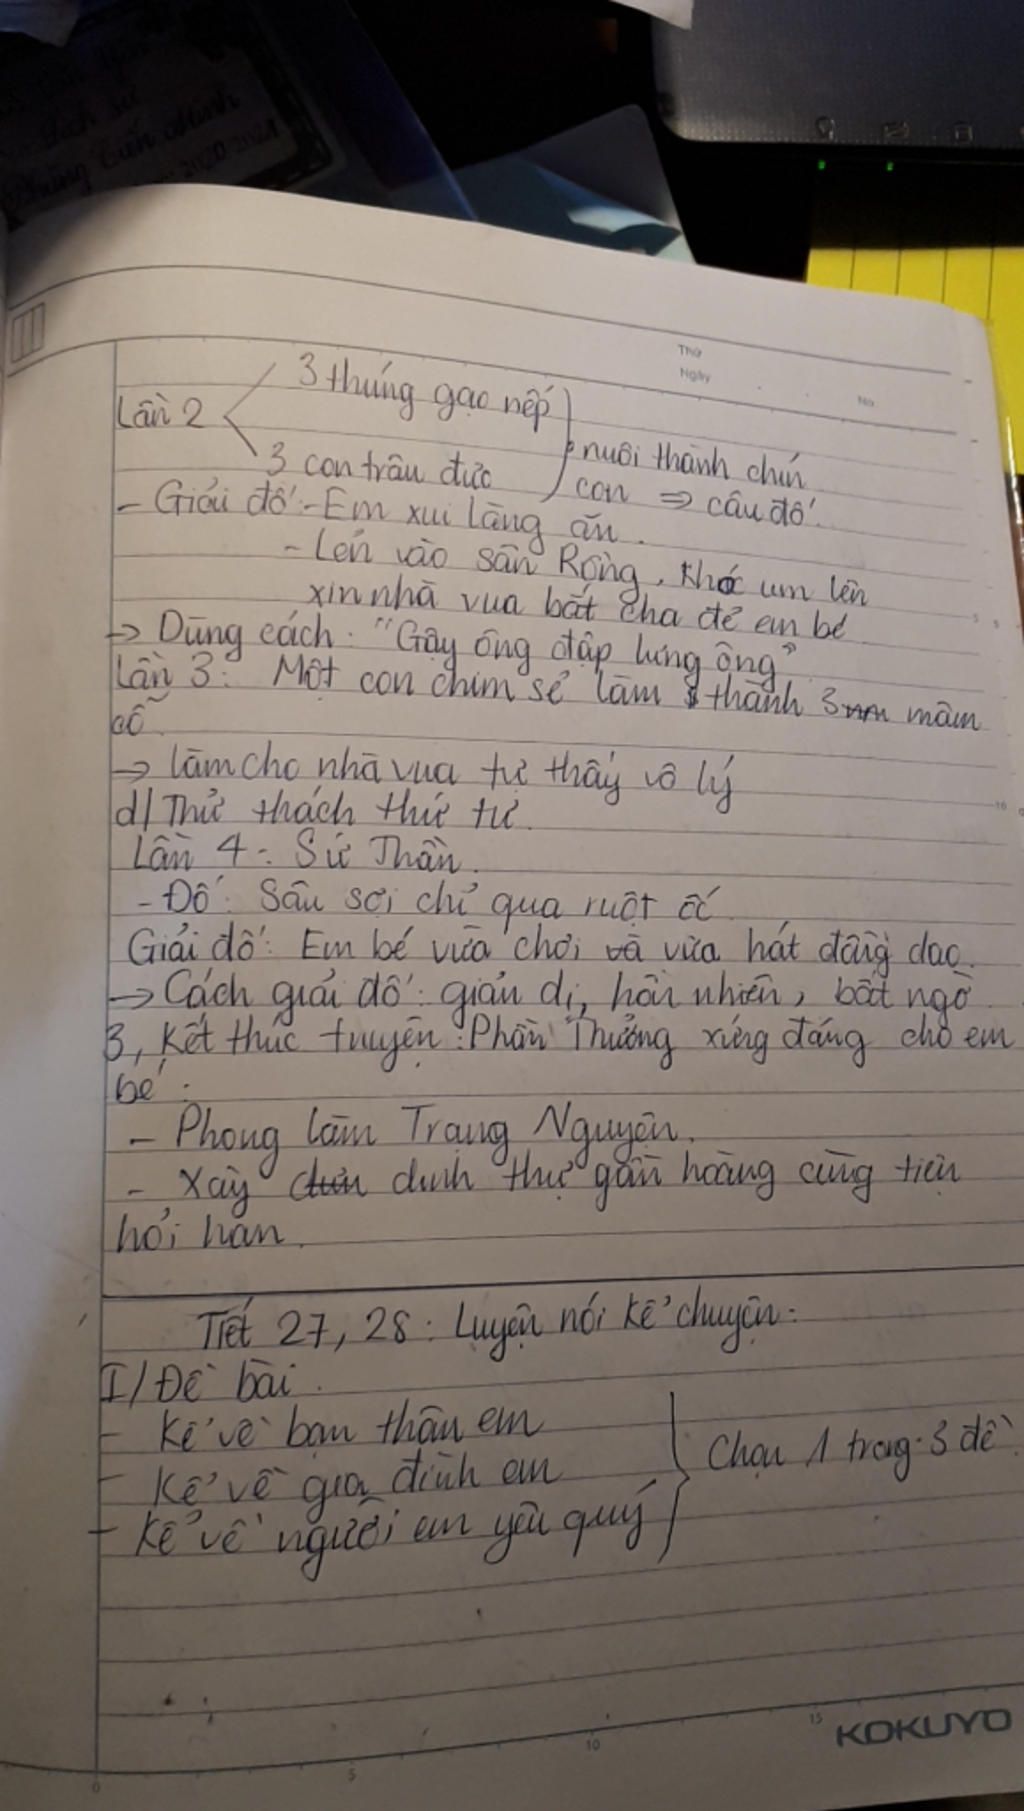 Phùng Tiến Minh
2020-2021
Thứ
Ngày
No.
3 thúng gạo nếp
Lần 2
nuôi thành chín
3 con trâu đực
con ⇒ câu đố.
- Giải đố: - Em xui làng ăn.
- Lẻn vào sân Rồng, khóc um lên
xin nhà vua bắt cha đẻ em bé
→ Dùng cách: "Gậy ông đập lưng ông"
Lần 3: Một con chim sẻ làm thành 3 mâm
cỗ.
→ làm cho nhà vua tự thấy vô lý
d/ Thử thách thứ tư.
Lần 4: Sứ Thần.
- Đố: Sâu sợi chỉ qua ruột ốc.
Giải đố: Em bé vừa chơi và vừa hát đồng dao.
→ Cách giải đố: giản dị, hồn nhiên, bất ngờ.
3, Kết thúc truyện: Phần Thưởng xứng đáng cho em
bé:
- Phong làm Trạng Nguyên.
- Xây dinh thự gần hoàng cung tiện
hỏi han.
Tiết 27, 28: Luyện nói kể chuyện:
I/ Đề bài.
- Kể về bạn thân em
Chọn 1 trong 3 đề.
- Kể về gia đình em
- Kể về người em yêu quý
0 5 10 15
KOKUYO